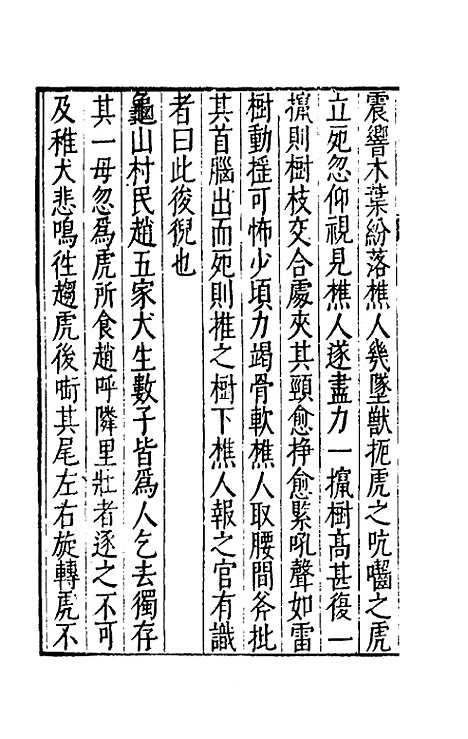 震響木葉紛落樵人幾墜獸扼虎之吭嚙之虎
立死忽仰視見樵人遂盡力一攛樹高甚復一
攛則樹枝交合處夾其頸愈掙愈緊吼聲如雷
樹動摇可怖少頃力竭骨軟樵人取腰間斧批
其首腦出而死則推之樹下樵人報之官有識
者曰此後猊也
龜山村民趙五家犬生數子皆爲人乞去獨存
其一母忽爲虎所食趙呼隣里壯者逐之不可
及稚犬悲鳴徃趨虎後嚙其尾左右旋轉虎不